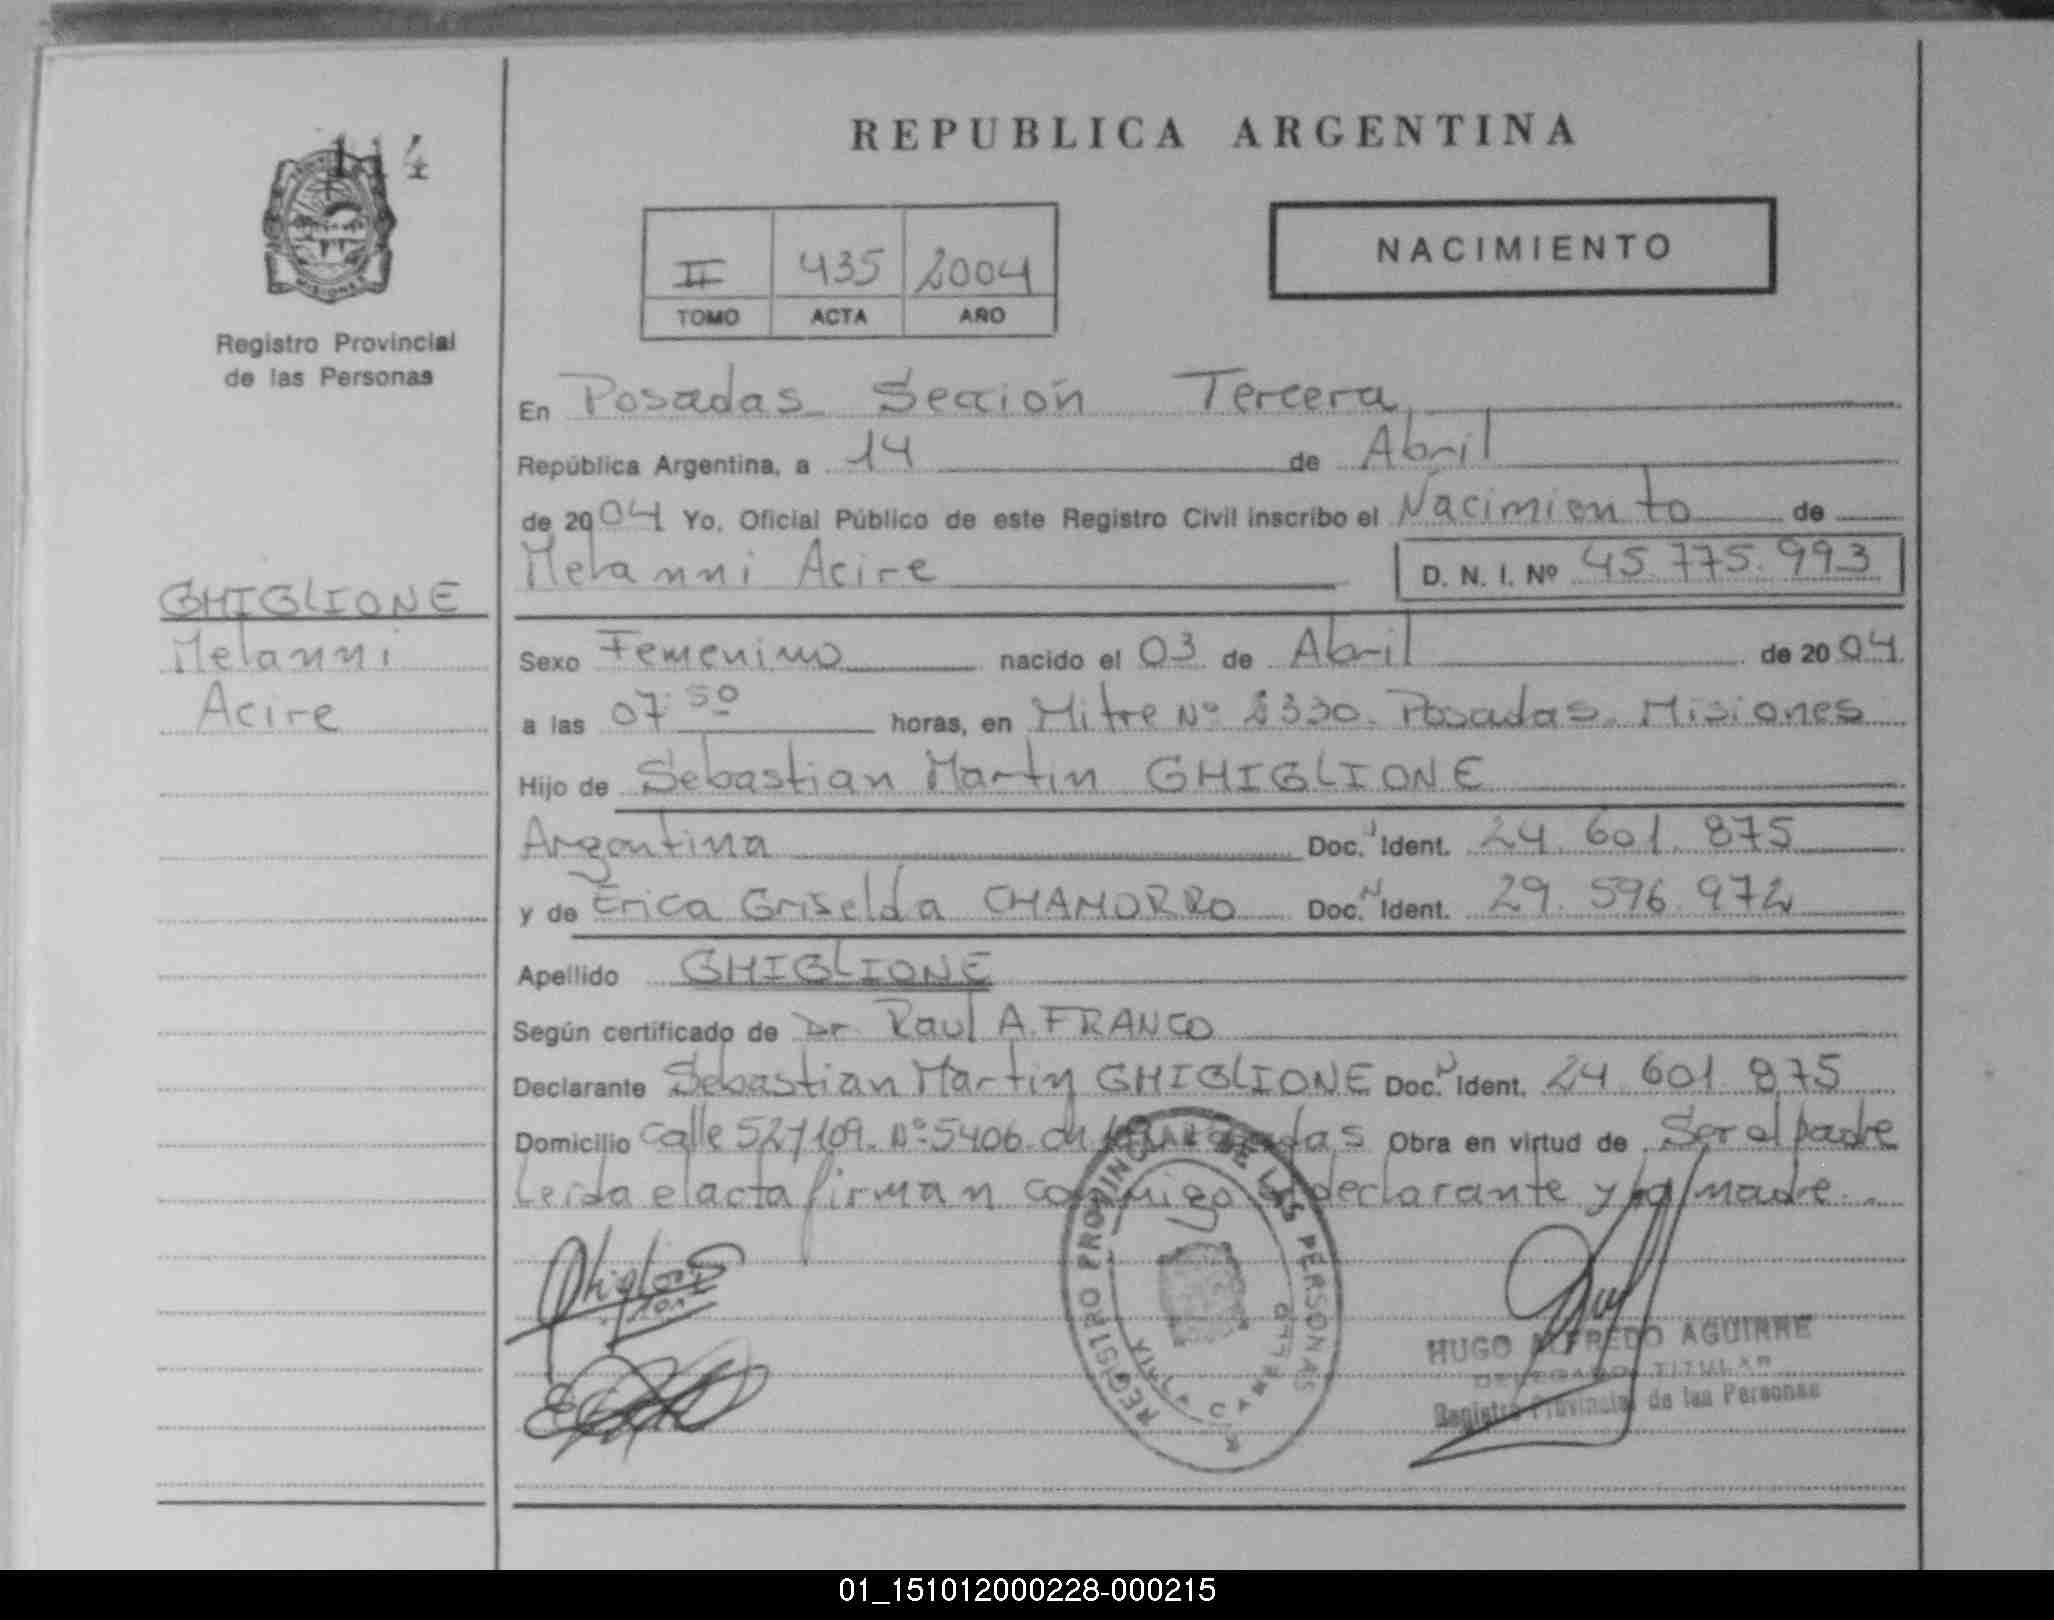 114
REPUBLICA ARGENTINA
NACIMIENTO
II 435 2004
TOMO ACTA AÑO
Registro Provincial
de las Personas
En Posadas Sección Tercera
República Argentina, a 14 de Abril
de 2004 Yo, Oficial Público de este Registro Civil inscribo el Nacimiento de
Melanni Acire D. N. I. Nº 45.775.993
GHIGLIONE
Melanni
Acire
Sexo Femenino nacido el 03 de Abril de 2004
a las 07:50 horas, en Mitre Nº 2330. Posadas. Misiones
Hijo de Sebastian Martin GHIGLIONE
Argentina Doc. Ident. 24.601.875
y de Erica Griselda CHAMORRO Doc. Ident. 29.596.972
Apellido GHIGLIONE
Según certificado de Dr. Raul A. FRANCO
Declarante Sebastian Martin GHIGLIONE Doc. Ident. 24.601.875
Domicilio Calle 527109. Nº 5406. Obra en virtud de Ser el padre
Leida el acta firman conmigo declarante y la madre
REGISTRO PROVINCIAL DE LAS PERSONAS
HUGO ALFREDO AGUIRRE
DELEGADO TITULAR
Registro Provincial de las Personas
01_151012000228-000215